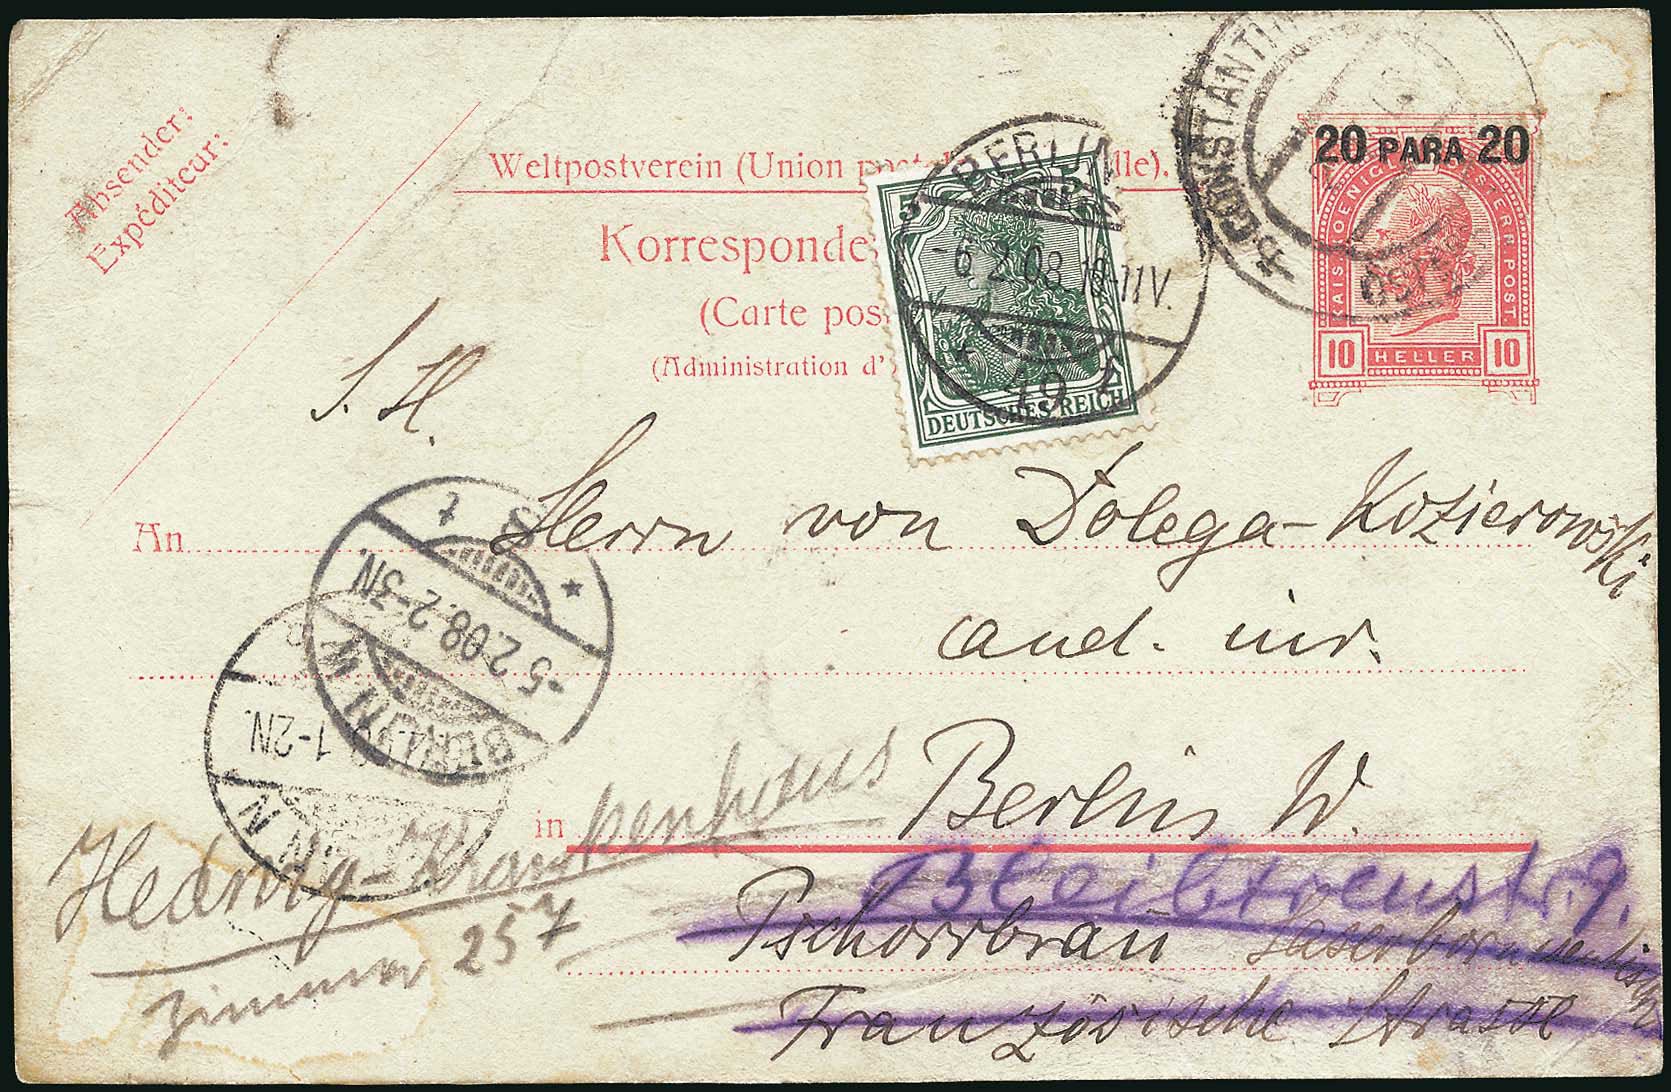 Absender:
Expéditeur:
Weltpostverein (Union
Korresponde
(Carte pos
(Administration d'
20 PARA 20
KAIS. KOENIGL. OESTERR. POST.
10 HELLER 10
CONSTANTIN
5
DEUTSCHES REICH
BERLIN
-6.2.08.10-11V.
19
S. H.
An Herrn von Dolega-Kozierowski
aud. inr.
in Berlin W.
BERLIN W
-5.2.08.2-3N.
1-2N.
N
Hedwig-Krankenhaus
Zimmer 257
Bleibtreustr. 9.
Pschorrbräu
Französische Strasse